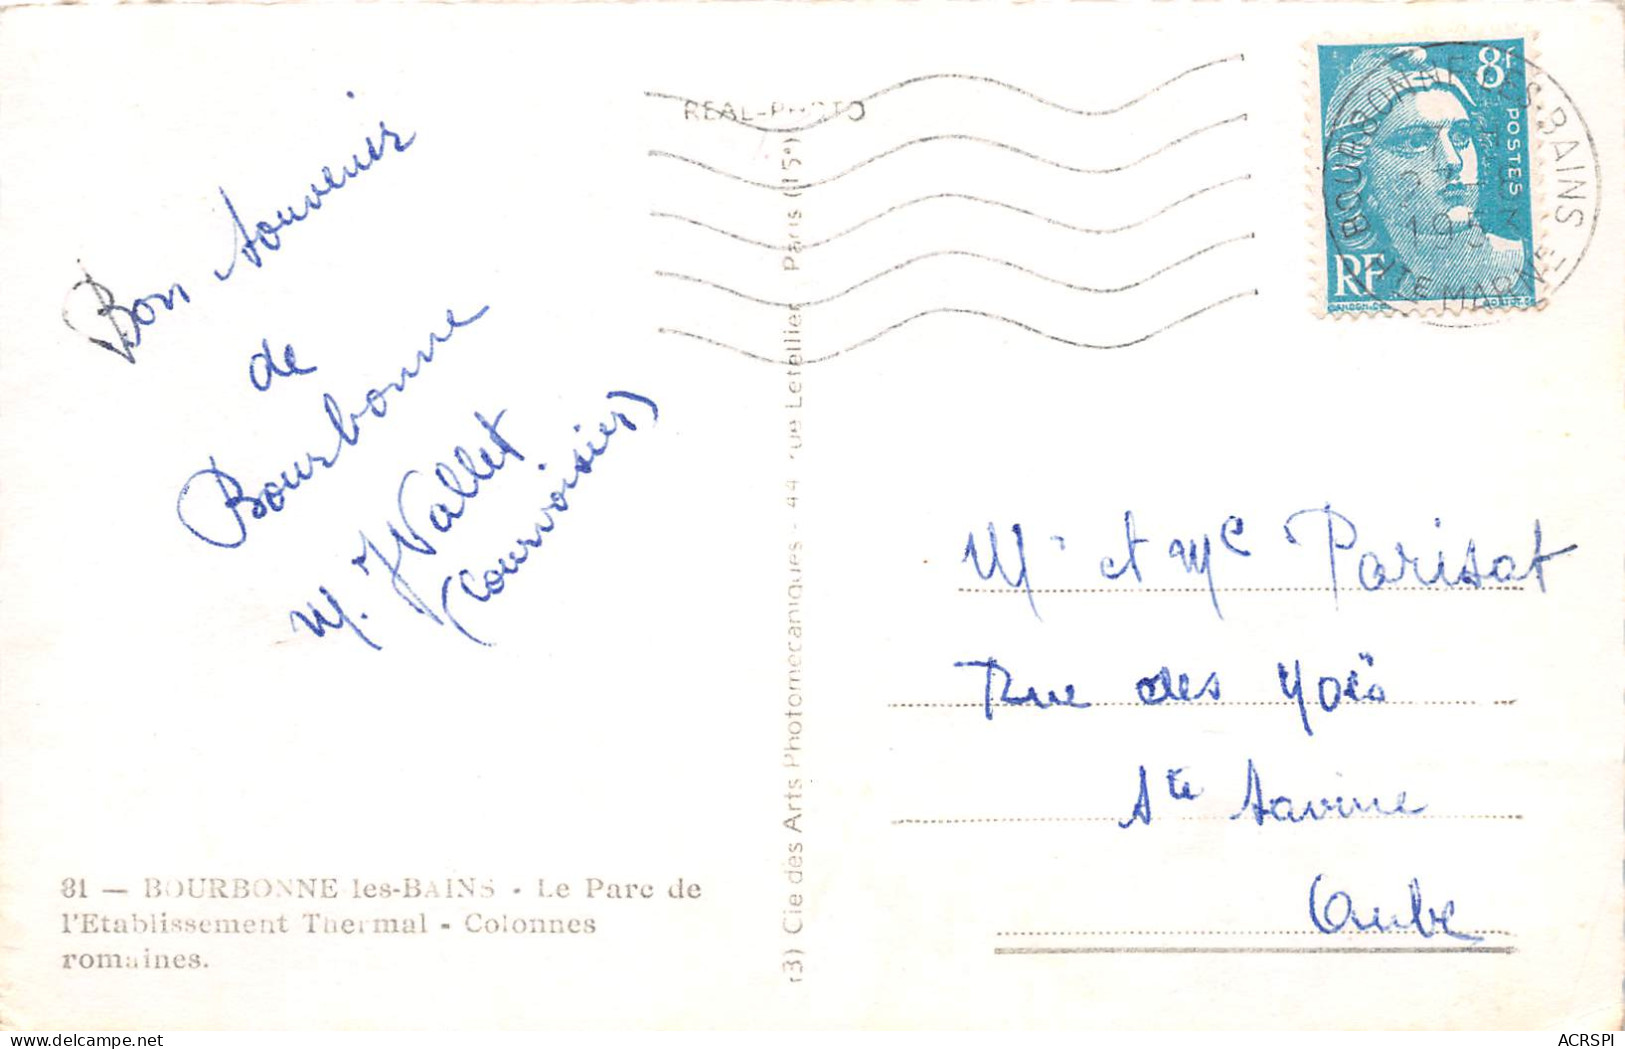 REAL-PHOTO
8f
POSTES
RF
GANDON.DEL
BOURBONNE-LES-BAINS
1953
HTE MARNE
Bon souvenir
de
Bourbonne
M. J Vallet
(Courvoisier)
Mr et Me Parisot
Rue des
Ste Savine
Aube
81 — BOURBONNE-les-BAINS - Le Parc de
l'Etablissement Thermal - Colonnes
romaines.
Cie des Arts Photomecaniques - 44 rue Letellier Paris (15e)
www.delcampe.net
ACRSPI